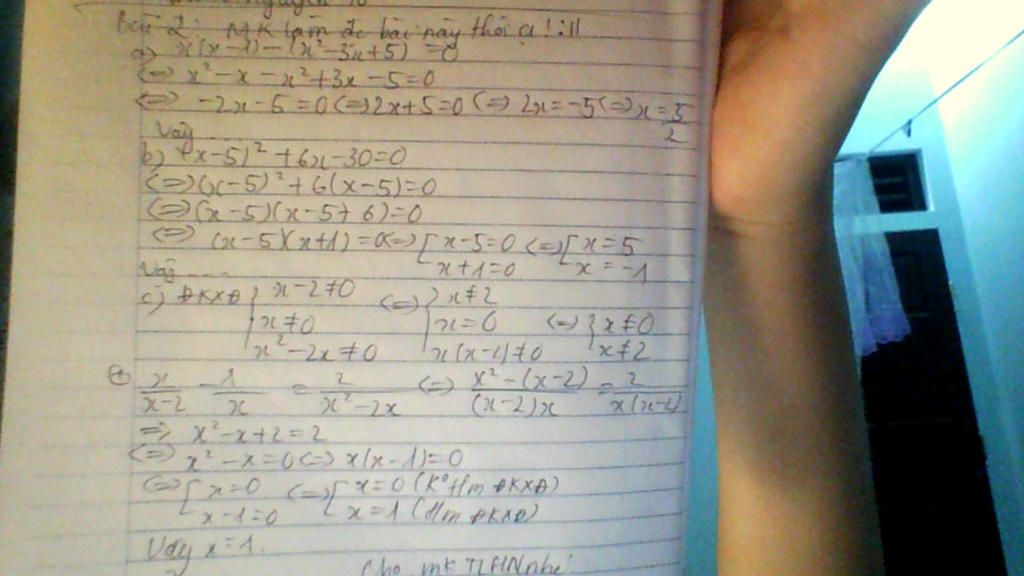 Bài 2: MK làm đc bài này thôi ạ!:ll
a) x(x-1)-(x²-3x+5) =0
(=) x²-x-x²+3x-5=0
(=) -2x-5=0(=)2x+5=0 (=) 2x=-5(=)x=5/2
Vậy
b) (x-5)²+6x-30=0
(=)(x-5)²+6(x-5)=0
(=)(x-5)(x-5+6)=0
(=) (x-5)(x+1)=0(=)[x-5=0 (=)[x=5
x+1=0 x=-1
Vậy ----
c) ĐKXĐ {x-2≠0 (=) {x≠2
x≠0 x=0 (=) {x≠0
x²-2x≠0 x(x-2)≠0 x≠2
x/(x-2) - 1/x = 2/(x²-2x) (=) (x²-(x-2))/((x-2)x) = 2/(x(x-2))
=> x²-x+2=2
(=) x²-x=0(=) x(x-1)=0
(=)[x=0 (=)[x=0 (K° t/m ĐKXĐ)
x-1=0 x=1 (t/m ĐKXĐ)
Vậy x=1.
Cho mk TLHN nhé